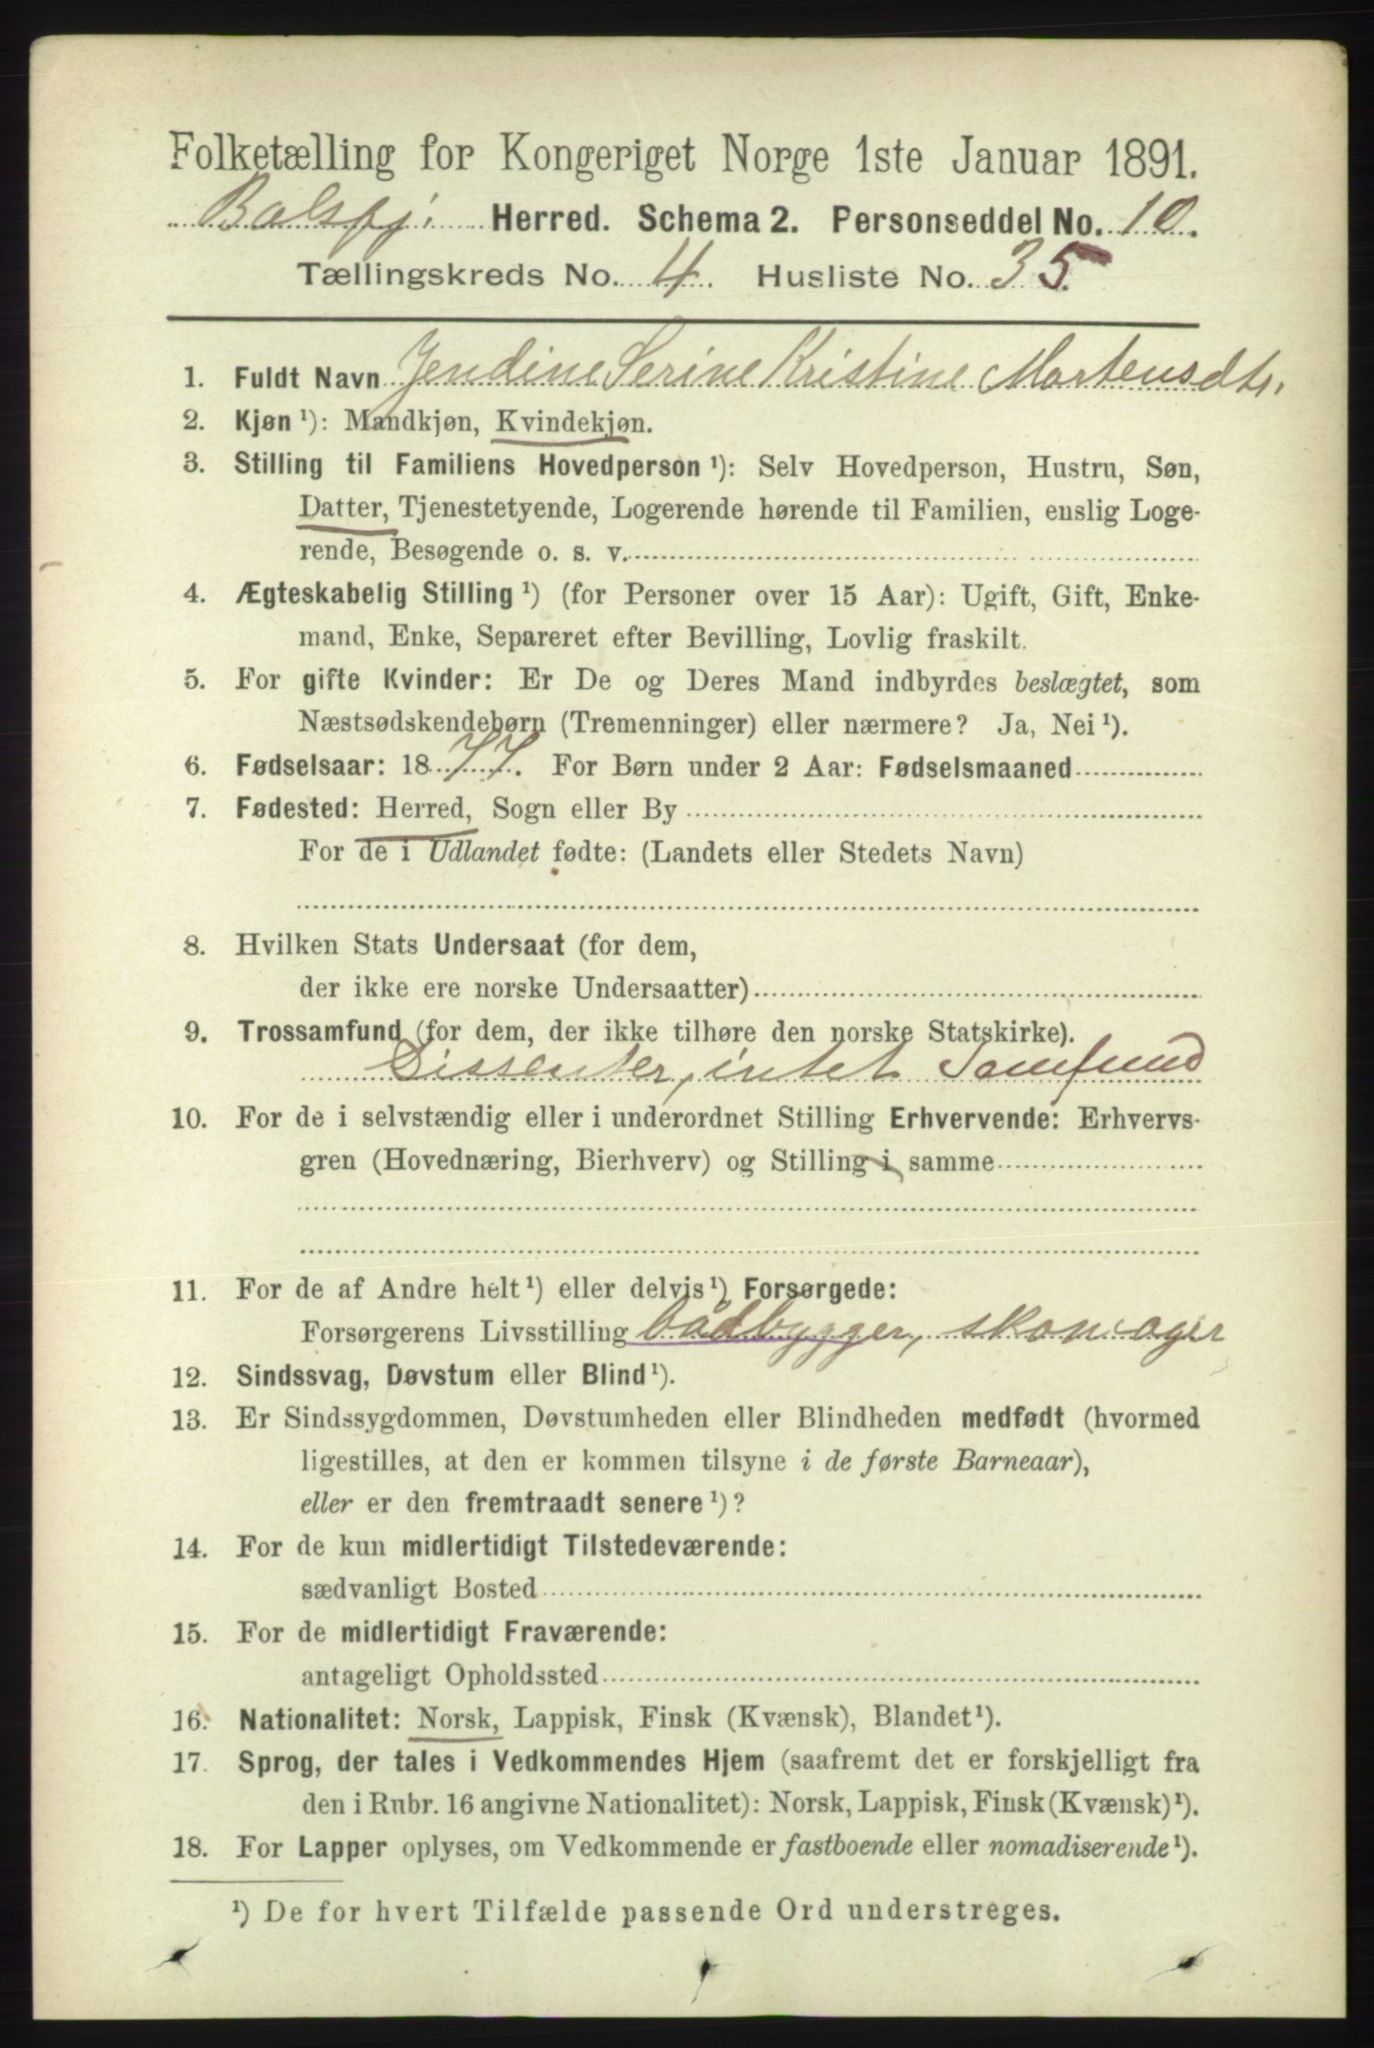 Folketælling for Kongeriget Norge 1ste Januar 1891.
Balsfj. Herred. Schema 2. Personseddel No. 10.
Tællingskreds No. 4. Husliste No. 35.
1. Fuldt Navn Jendine Serine Kristine Mortensdtr.
2. Kjøn ¹): Mandkjøn, Kvindekjøn.
3. Stilling til Familiens Hovedperson ¹): Selv Hovedperson, Hustru, Søn,
Datter, Tjenestetyende, Logerende hørende til Familien, enslig Loge-
rende, Besøgende o. s. v.
4. Ægteskabelig Stilling ¹) (for Personer over 15 Aar): Ugift, Gift, Enke-
mand, Enke, Separeret efter Bevilling, Lovlig fraskilt.
5. For gifte Kvinder: Er De og Deres Mand indbyrdes beslægtet, som
Næstsødskendebørn (Tremenninger) eller nærmere? Ja, Nei ¹).
6. Fødselsaar: 1877. For Børn under 2 Aar: Fødselsmaaned
7. Fødested: Herred, Sogn eller By
For de i Udlandet fødte: (Landets eller Stedets Navn)
8. Hvilken Stats Undersaat (for dem,
der ikke ere norske Undersaatter)
9. Trossamfund (for dem, der ikke tilhøre den norske Statskirke).
Dissenter, intet Samfund
10. For de i selvstændig eller i underordnet Stilling Erhvervende: Erhvervs-
gren (Hovednæring, Bierhverv) og Stilling i samme
11. For de af Andre helt ¹) eller delvis ¹) Forsørgede:
Forsørgerens Livsstilling bådbygger, skomager
12. Sindssvag, Døvstum eller Blind ¹).
13. Er Sindssygdommen, Døvstumheden eller Blindheden medfødt (hvormed
ligestilles, at den er kommen tilsyne i de første Barneaar),
eller er den fremtraadt senere ¹)?
14. For de kun midlertidigt Tilstedeværende:
sædvanligt Bosted
15. For de midlertidigt Fraværende:
antageligt Opholdssted
16. Nationalitet: Norsk, Lappisk, Finsk (Kvænsk), Blandet ¹).
17. Sprog, der tales i Vedkommendes Hjem (saafremt det er forskjelligt fra
den i Rubr. 16 angivne Nationalitet): Norsk, Lappisk, Finsk (Kvænsk) ¹).
18. For Lapper oplyses, om Vedkommende er fastboende eller nomadiserende ¹).
¹) De for hvert Tilfælde passende Ord understreges.